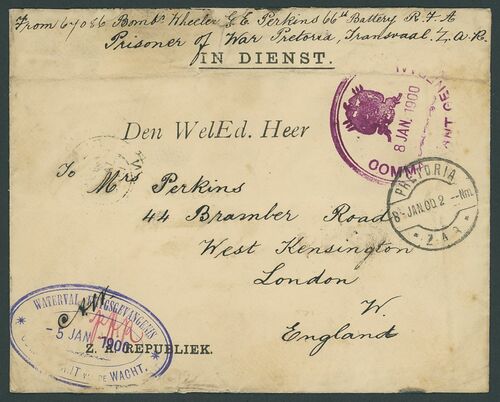 From 67086 Bombr Wheeler G. E. Perkins 66th Battery R. F. A
Prisoner of War Pretoria, Transvaal. Z. A. R.
IN DIENST.
8 JAN. 1900
COMM
ANT GEN
Den WelEd. Heer
PRETORIA
8-JAN.00 2--Nm.
Z.A.R
To Mrs Perkins
44 Bramber Road
West Kensington
London
W.
England
WATERVAL
- 5 JAN 1900
Z. A. REPUBLIEK.
WACHT.